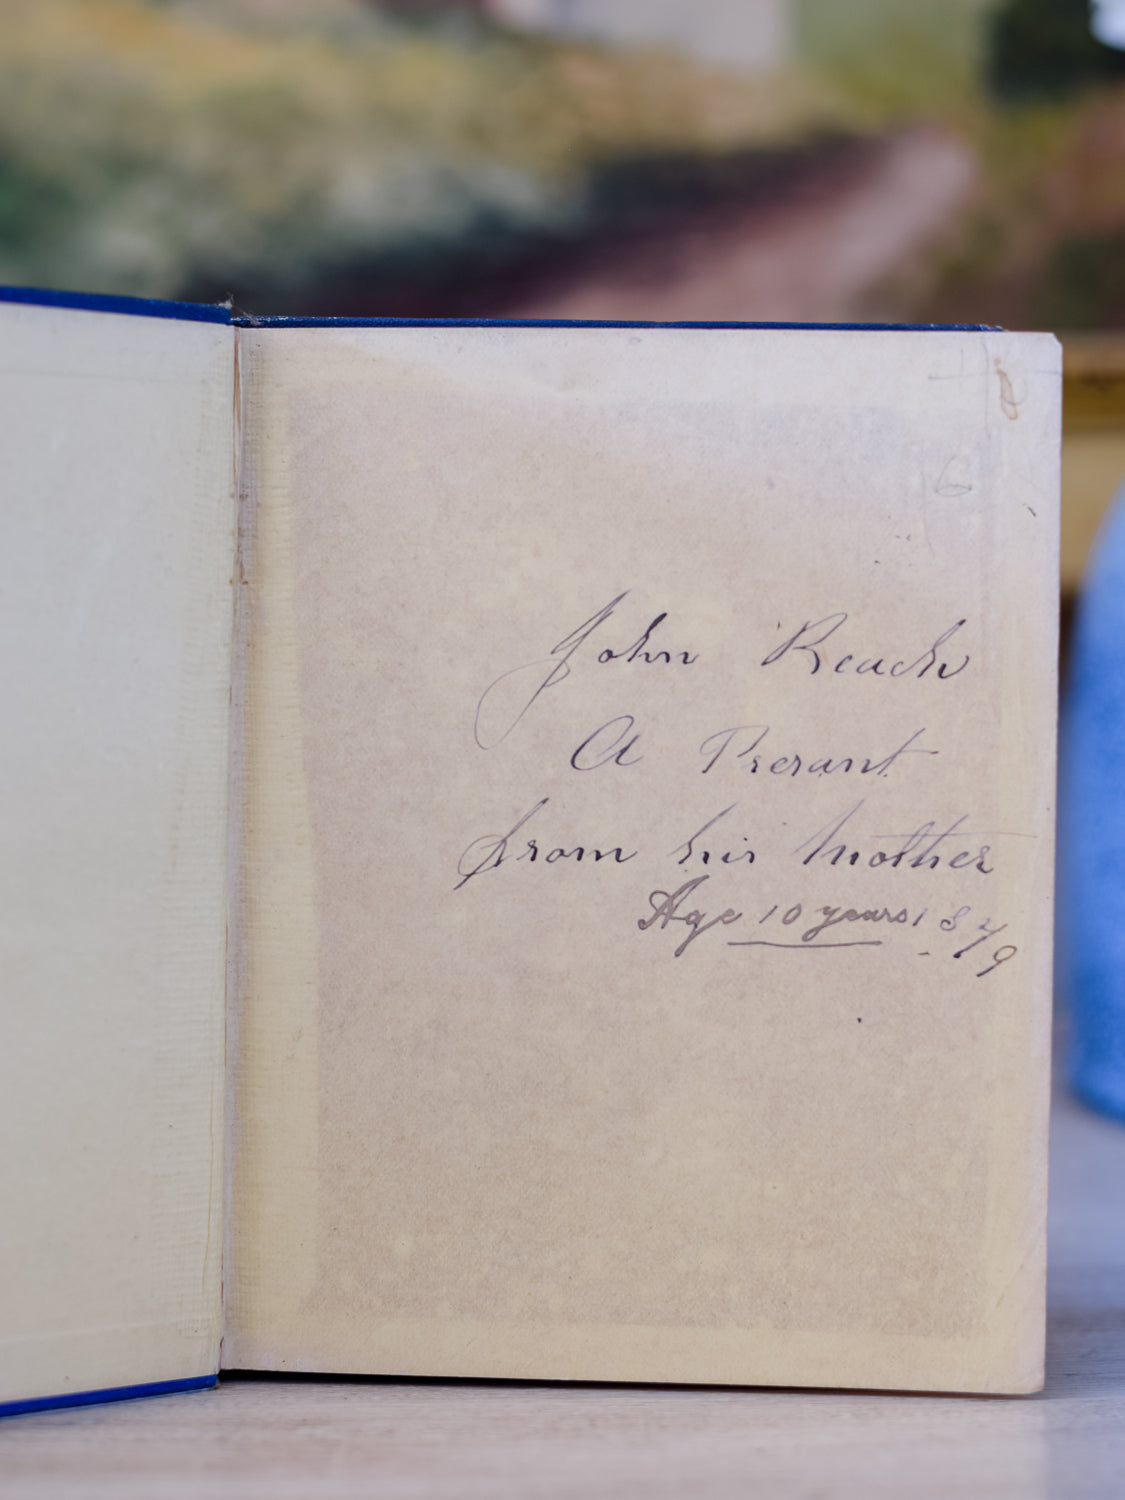 John Reach
A Presant
from his Mother
Age 10 years 1879